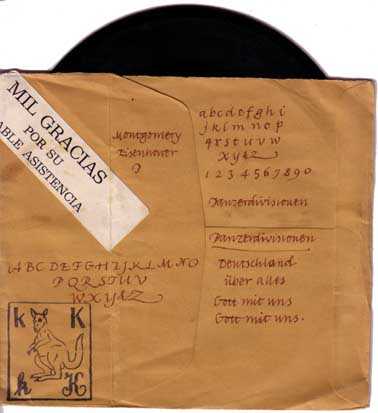 MIL GRACIAS
POR SU
ABLE ASISTENCIA
Montgomery
Eisenhower
?
abcdefghi
jklmnop
qrstuvw
xyzz
1234567890
Panzerdivisionen
Panzerdivisionen
Deutschland
über alles
Gott mit uns
Gott mit uns.
ABCDEFGHIJKLMNO
PQRSTUV
WXYZZ
k K
k K